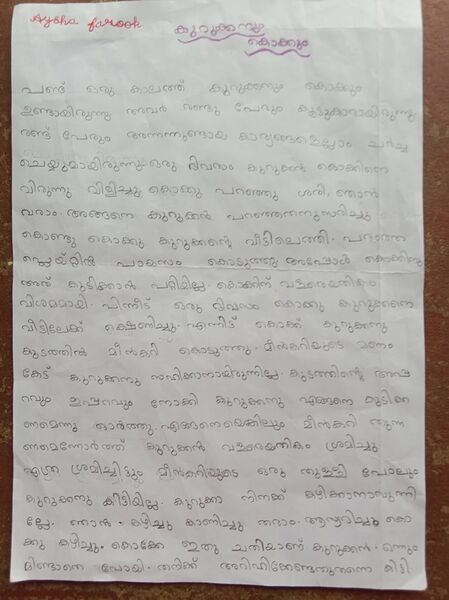 Aysha farook
കുറുക്കനും
കൊക്കും
പണ്ട് ഒരു കാലത്ത് കുറുക്കനും കൊക്കും
ഉണ്ടായിരുന്നു അവർ രണ്ടു പേരും കൂട്ടുകാരായിരുന്നു
രണ്ട് പേരും അന്നന്നുണ്ടായ കാര്യങ്ങളെല്ലാം ചർച്ച
ചെയ്യുമായിരുന്നു. ഒരു ദിവസം കുറുക്കൻ കൊക്കിനെ
വിരുന്നു വിളിച്ചു കൊക്കു പറഞ്ഞു ശരി, ഞാൻ
വരാം. അങ്ങനെ കുറുക്കൻ പറഞ്ഞതനുസരിച്ചു
കൊണ്ടു കൊക്കു കുറുക്കന്റെ വീട്ടിലെത്തി. പരന്ന
പ്ലെയ്റ്റിൽ പായസം കൊടുത്തു അപ്പോൾ കൊക്കിനു
അത് കുടിക്കാൻ പറ്റിയില്ല. കൊക്കിന് വളരെയതികം
വിശമമായി. പിന്നീട് ഒരു ദിവസം കൊക്കു കുറുക്കനെ
വീട്ടിലേക്ക് ക്ഷണിച്ചു. എന്നിട് കൊക്ക് കുറുക്കനു
കുടത്തിൽ മീൻകറി കൊടുത്തു. മീൻകറിയുടെ മണം
കേട് കുറുക്കനു സഹിക്കാനായിരുന്നില്ല. കുടത്തിന്റെ അപ്പു
റവും ഇപ്പുറവും നോക്കി കുറുക്കനു എങ്ങനെ കുടിക്ക
ണമെന്നു ഓർത്തു. എങ്ങനെയെങ്കിലും മീൻകറി തിന്ന
ണമെന്നോർത്ത് കുറുക്കൻ വളരെയതികം ശ്രമിച്ചു
എത്ര ശ്രമിച്ചിട്ടും മീൻകറിയുടെ ഒരു തുള്ളി പോലും
കുറുക്കനു കിട്ടിയില്ല. കുറുക്കാ നിനക്ക് കഴിക്കാനാവുന്നി
ല്ലേ. ഞാൻ കഴിച്ചു കാണിച്ചു തരാം. ആസ്വദിച്ചും കൊ
ക്കു കഴിച്ചു. കൊക്കേ ഇതു ചതിയാണ് കുറുക്കൻ. ഒന്നും
മിണ്ടാതെ പോയി. തനിക്ക് അറിഹിക്കേണ്ടതുതന്നെ കിട്ടി